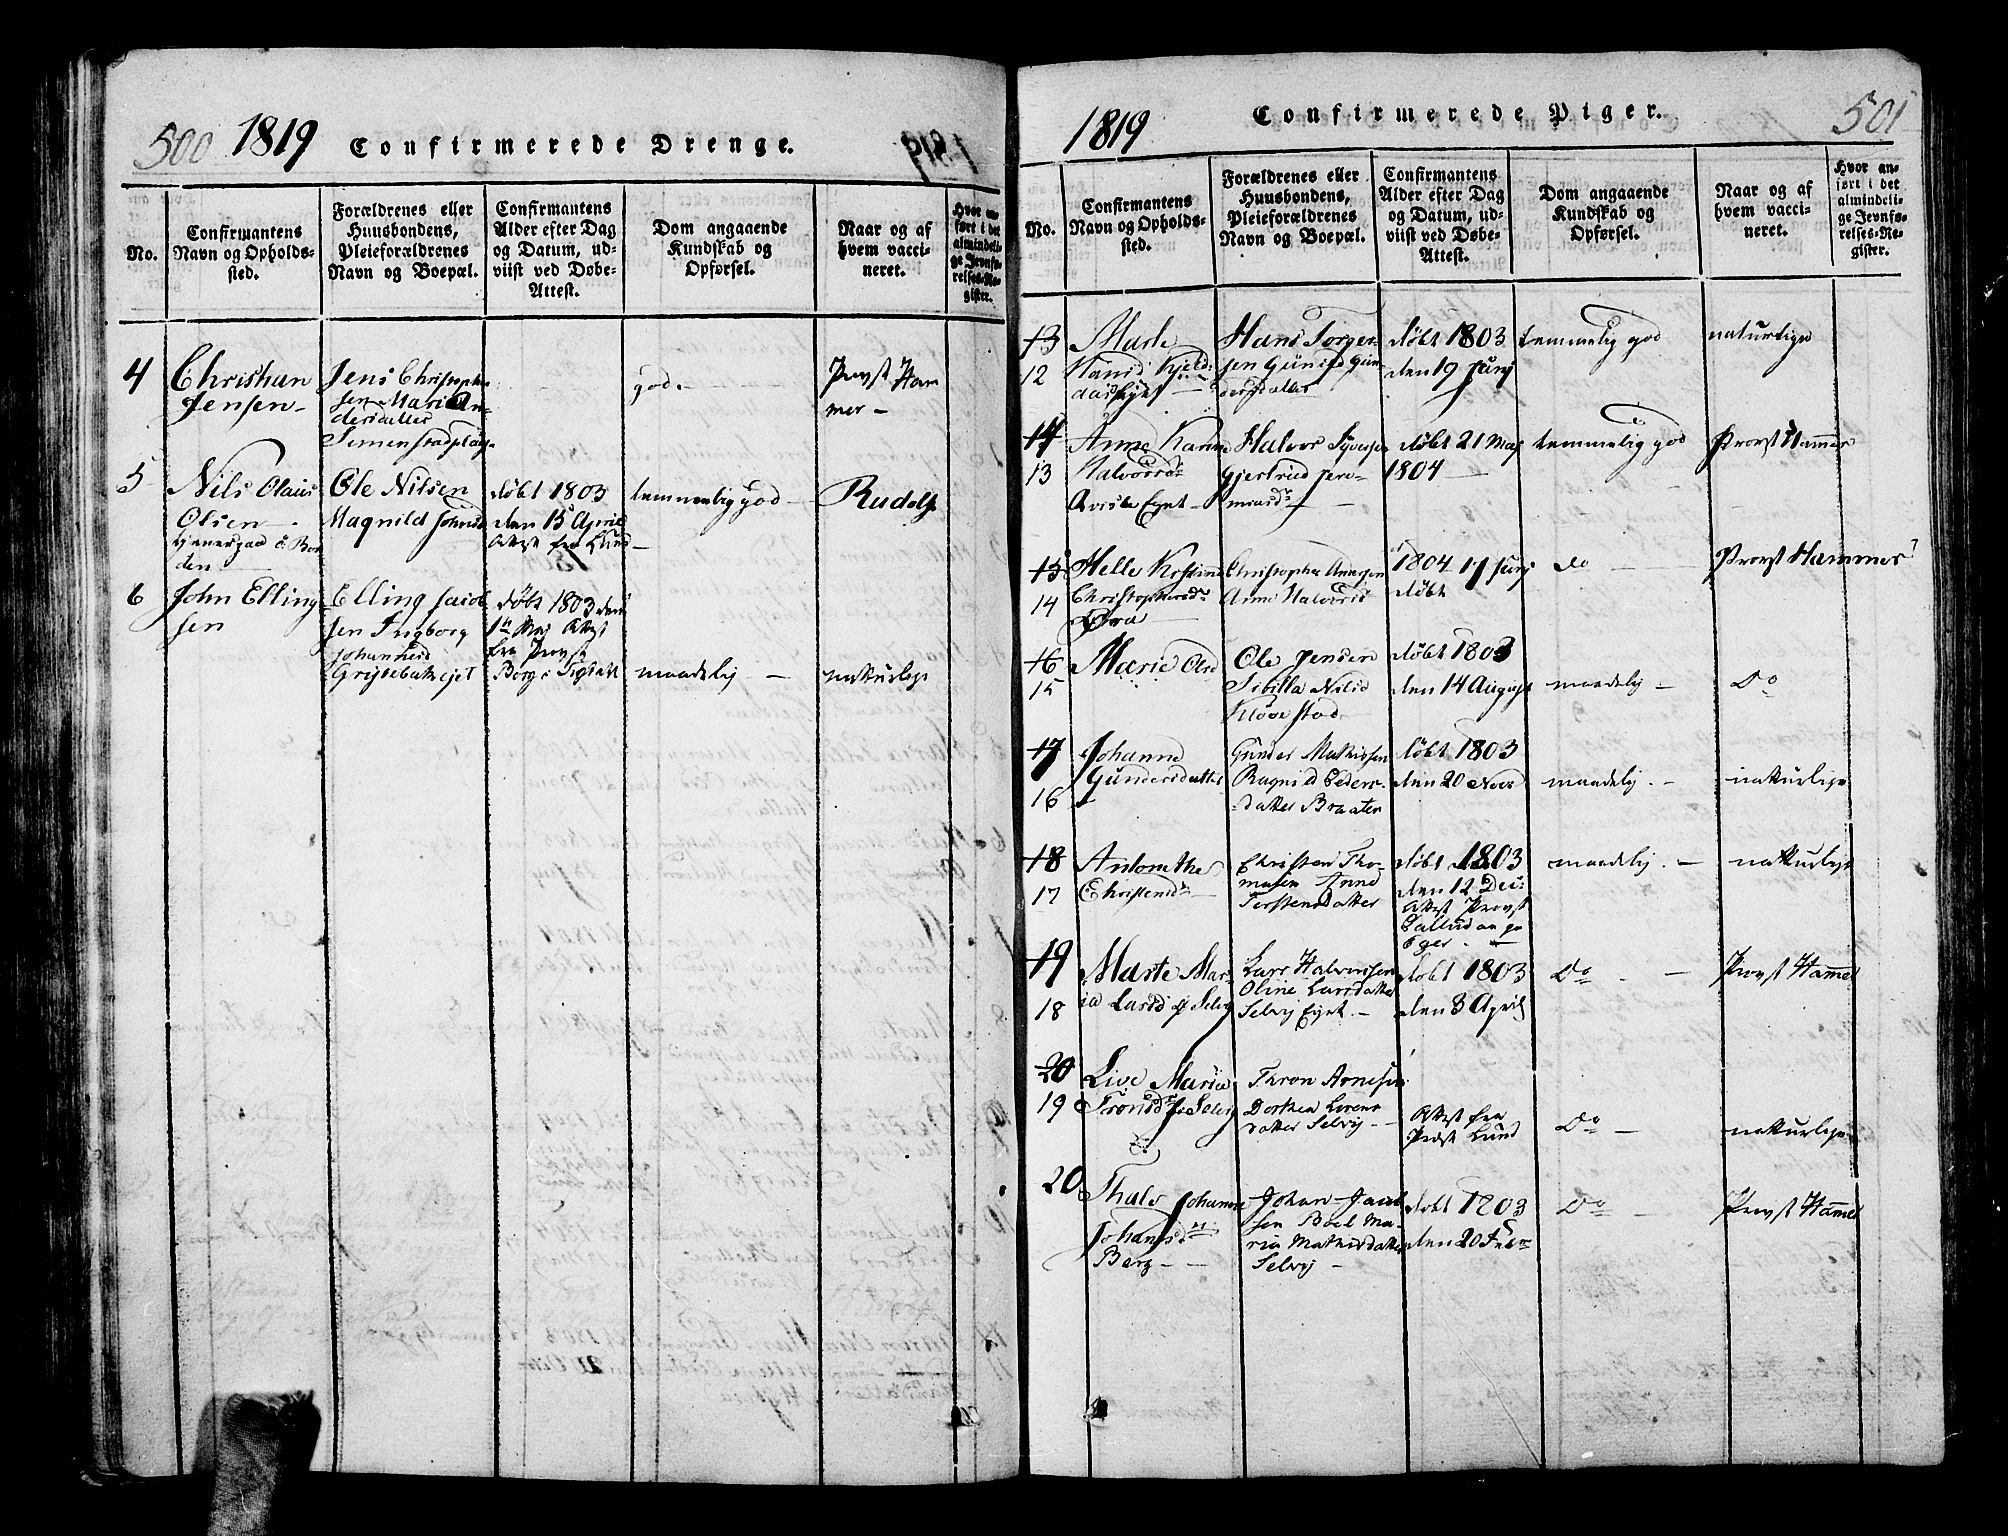 500 1819 Confirmerede Drenge.
No.
Confirmantens Navn og Opholdssted.
Forældrenes eller Huusbondens, Pleieforældrenes Navn og Boepæl.
Confirmantens Alder efter Dag og Datum, udviist ved Døbe-Attest.
Dom angaaende Kundskab og Opførsel.
Naar og af hvem vaccineret.
Hvor anført i det almindelige Jevnførelses-Register.
4
Christian
Jensen
Jens Christopher
sen Mari An
dersdatter
Simenstadpladz
god.
Provst Ham
mer
5
Nils Olaus
Olsen
Ole Nilsen
Magnild Johnsd
døbt 1803
den 15 April
Attest fra Lund
temmelig god
Rudolf
6
John Elling
sen
Elling Jacob
sen Ingborg
Johannesd
døbt 1803 den
1 Maj Attest
fra Provst
Borg
maadelig
naturlige
1819 Confirmerede Piger. 501
No.
Confirmantens Navn og Opholdssted.
Forældrenes eller Huusbondens, Pleieforældrenes Navn og Boepæl.
Confirmantens Alder efter Dag og Datum, udviist ved Døbe-Attest.
Dom angaaende Kundskab og Opførsel.
Naar og af hvem vaccineret.
Hvor anført i det almindelige Jevnførelses-Register.
13
12
Marte
Hansd
Hans Torger
sen Gunild Gun
dersdatter
døbt 1803
den 19 Junj
temmelig god
naturlige
14
13
Anne Karine
Halvorsdr
Eyet
Halvor Syversen
Gjertrud Jere
miasdr
døbt 21 Maj
1804
temmelig god
Provst Hammer
15
14
Helle Kirstine
Christophersdr
Christopher Andersen
Anne Halvorsd
1804 17 Junj
døbt
do
Provst Hammer
16
15
Marie Olsd
Ole Jensen
Sibilla Nilsd
Kløvestad
døbt 1803
den 14 August
maadelig
Do
17
16
Johanne
Gundersdatter
Gunder Mathissen
Ragnid Peders
datter Braaten
døbt 1803
den 20 Novr
maadelig
naturlige
18
17
Antonethe
Christensdr
Christen Tho
masen Anne
Torstensdatter
døbt 1803
den 12 Dec:
Attest Provst
Eger
maadelig
naturlige
19
18
Marte Mar
ia Larsd Selvig
Lars Halvorsen
Oline Larsdatter
Selvij Eyet
døbt 1803
den 3 April
Do
Provst Hammer
20
19
Live Maria
Tronsdr Selvij
Thron Arnesen
Dorthea Lorens
datter Selvij
Attest fra
Præst Lund
Do
naturlige
20
Thale Johanne
Johansdr
Berg
Johan Jacob
sen Boel Ma
ria Mathisdatter
Selvij
døbt 1803
den 20 Febr
Do
Provst Hammer